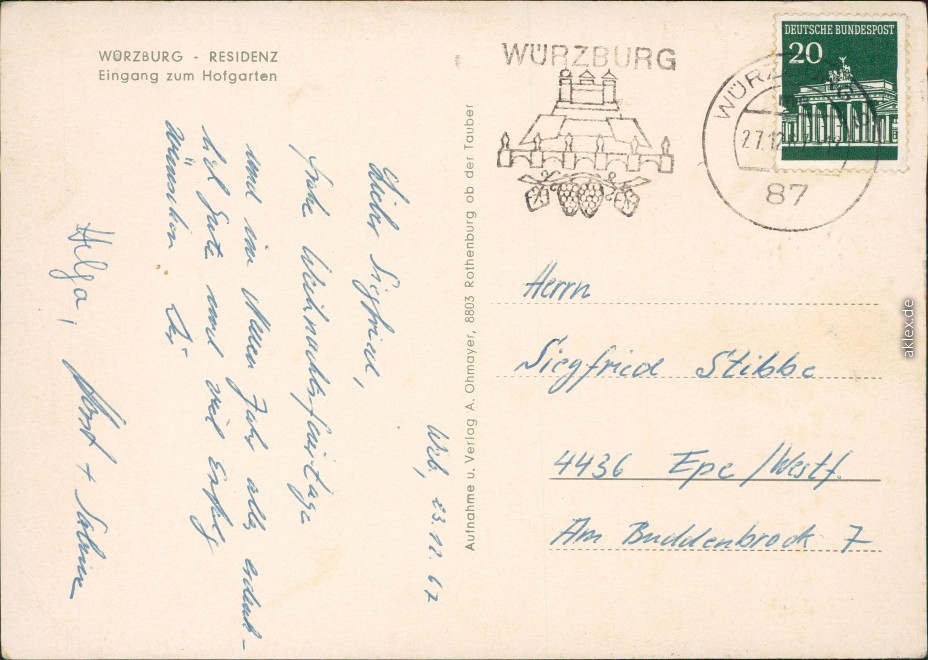 WÜRZBURG - RESIDENZ
Eingang zum Hofgarten
Wbg, 23.12.67
Lieber Siegfried,
frohe Weihnachtsfeiertage
und im Neuen Jahr alles erdenk-
lich Gute und viel Erfolg
wünschen Dir
Helga, Horst +
Aufnahme u. Verlag A. Ohmayer, 8803 Rothenburg ob der Tauber
WÜRZBURG
DEUTSCHE BUNDESPOST
20
WÜRZBURG
87
Herrn
Siegfried Stibbe
4436 Epe/Westf.
Am Buddenbrock 7
aklex.de